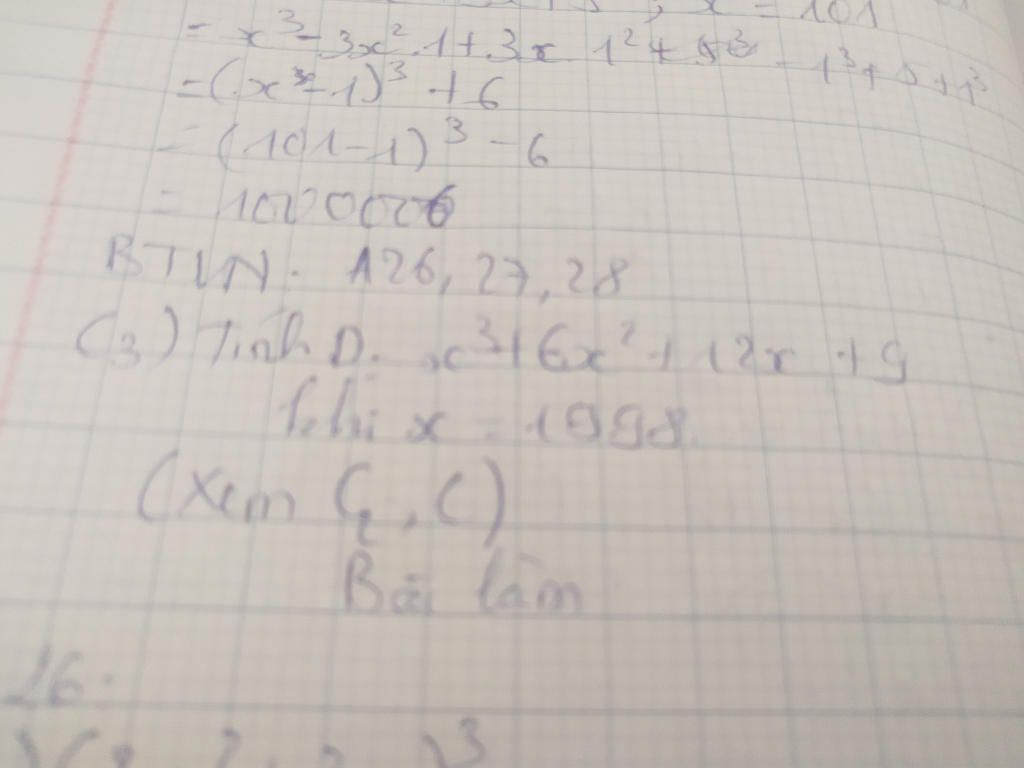 x = 101
= x³ - 3x².1 + 3x.1² + 5 - 1³ + 5 + 1³
= (x - 1)³ + 6
= (101 - 1)³ - 6
= 1000006
BTVN: 126, 27, 28
(3) Tính D. x³ + 6x² + 12x + 9
khi x = 1998
(Xem C₂, C)
Bài làm
26.
)³